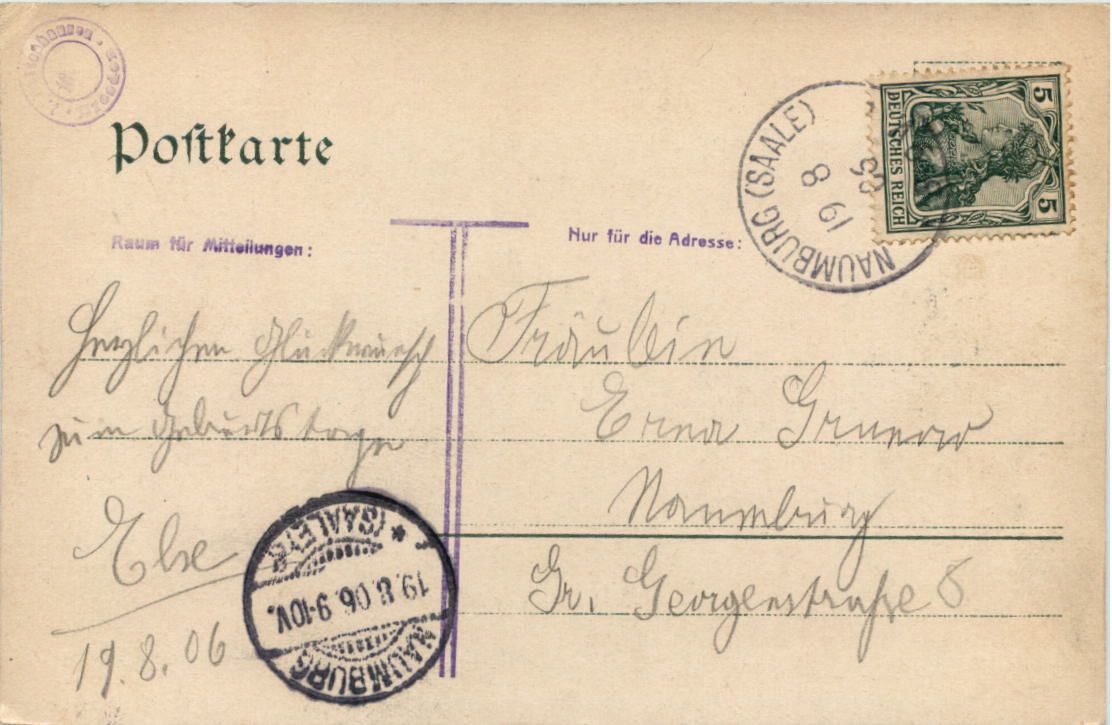 Postkarte
Raum für Mitteilungen:
Nur für die Adresse:
Herzlichen Glückwunsch
zum Geburtstage
Else
19.8.06
Fräulein
Erna Grunow
Naumburg
Gr. Georgenstraße 8
NAUMBURG (SAALE)
19
8
5
5
DEUTSCHES REICH
NAUMBURG
19.8.06.9-10V.
* (SAALE)